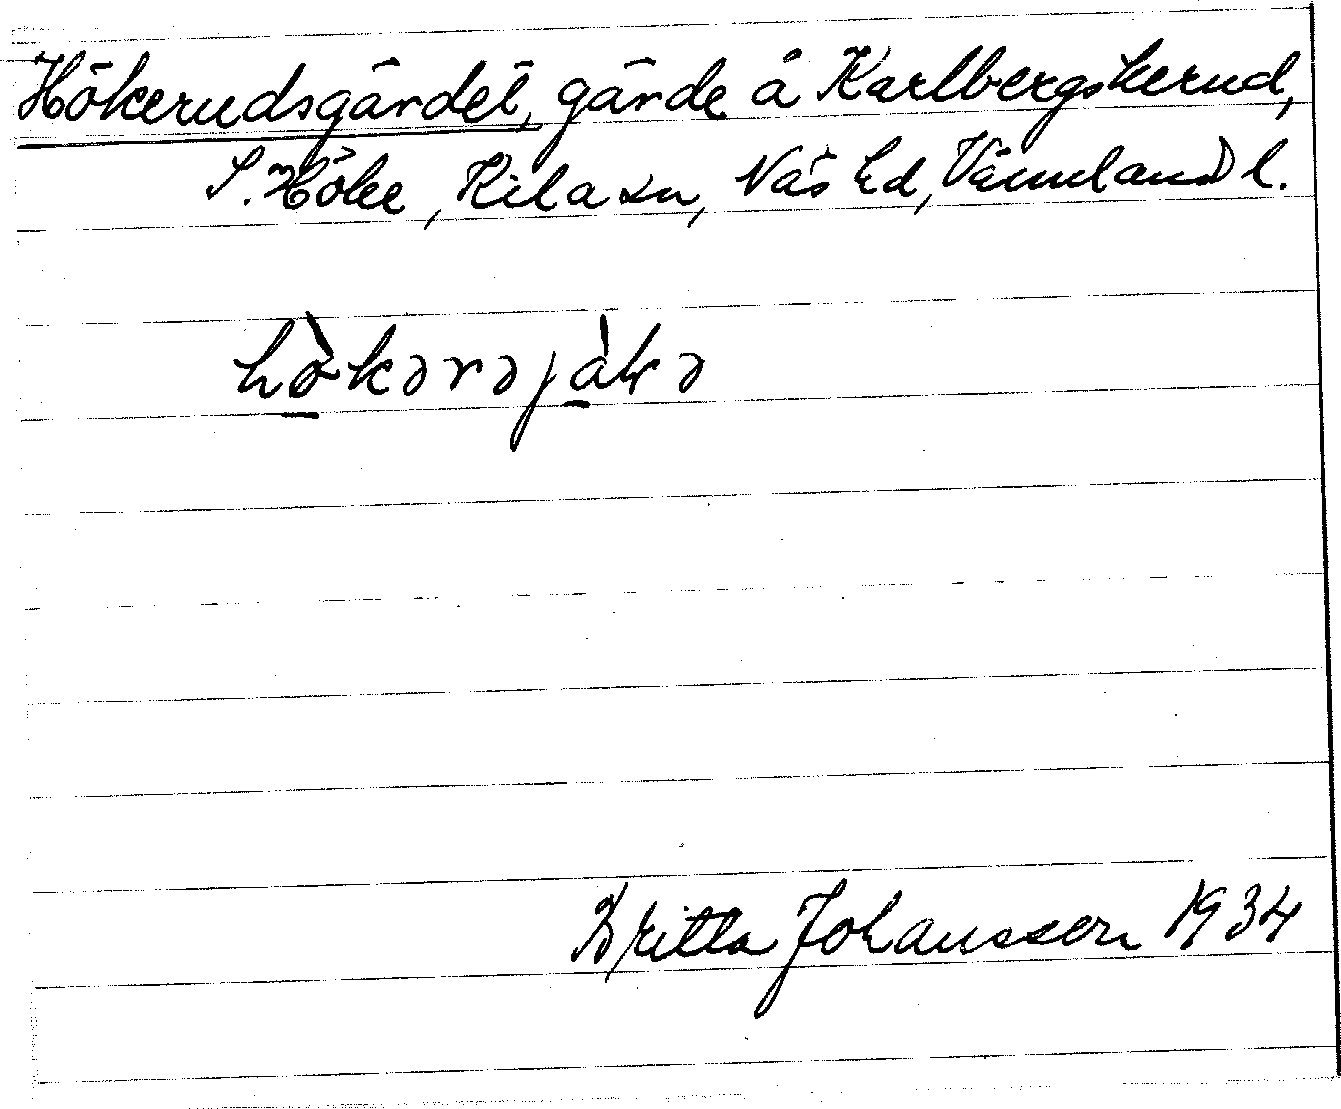 Hökerudsgärdet, gärde å Karlbergskerud,
S. Höke, Kila sn, Näs hd, Värmlands l.
hö̀kərəjàḷə
Britta Johansson 1934